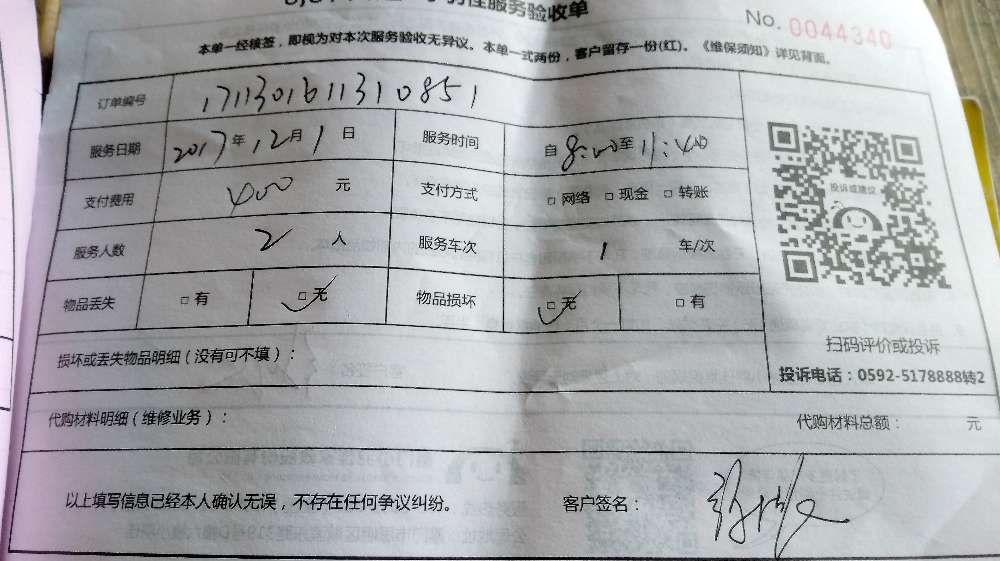 性服务验收单
No. 0044340
本单一经核签，即视为对本次服务验收无异议。本单一式两份，客户留存一份(红)。《维保须知》详见背面。
订单编号 171130161131 0851
服务日期 2017年12月1日 服务时间 自8:00至11:40
支付费用 400 元 支付方式 □ 网络 □ 现金 □ 转账
投诉或建议
服务人数 2 人 服务车次 1 车/次
物品丢失 □ 有 □ 无 物品损坏 □ 无 □ 有
扫码评价或投诉
投诉电话：0592-5178888转2
损坏或丢失物品明细（没有可不填）：
代购材料明细（维修业务）： 代购材料总额： 元
以上填写信息已经本人确认无误，不存在任何争议纠纷。 客户签名：